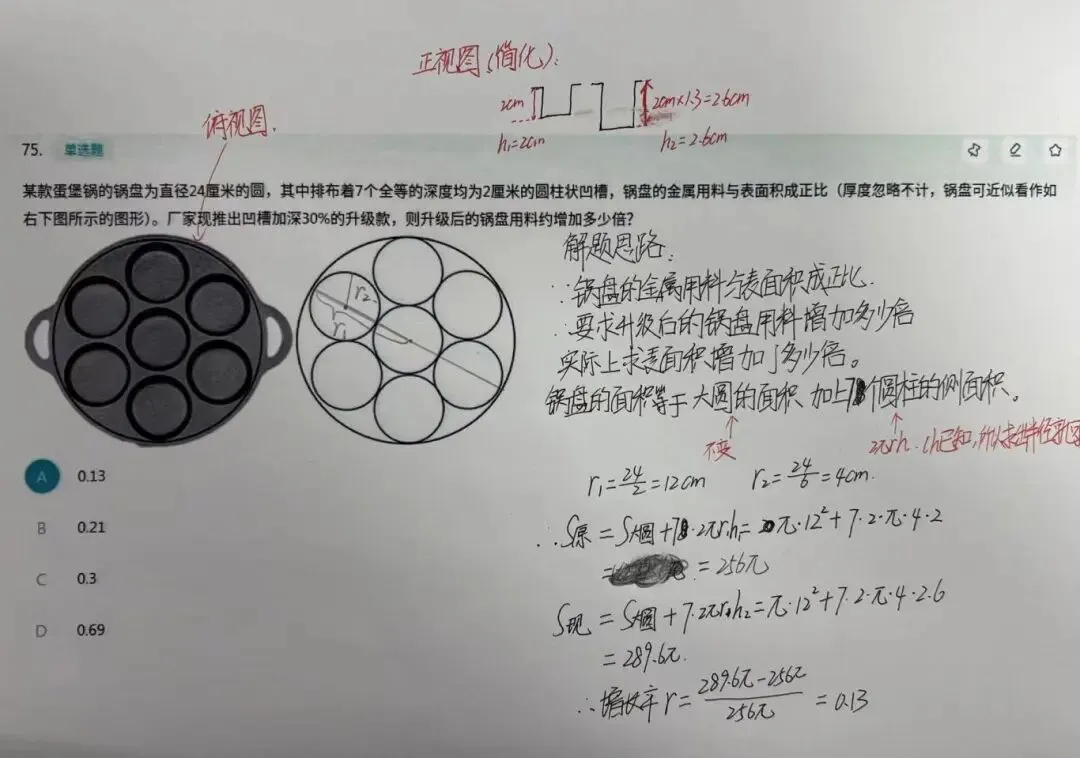 正视图(简化):
2cm
2cm×1.3=2.6cm
h₁=2cm
h₂=2.6cm
俯视图.
75.
单选题
某款蛋堡锅的锅盘为直径24厘米的圆，其中排布着7个全等的深度均为2厘米的圆柱状凹槽，锅盘的金属用料与表面积成正比（厚度忽略不计，锅盘可近似看作如
右下图所示的图形）。厂家现推出凹槽加深30%的升级款，则升级后的锅盘用料约增加多少倍？
r₂
r₁
A 0.13
B 0.21
C 0.3
D 0.69
解题思路:
∵锅盘的金属用料与表面积成正比.
∴要求升级后的锅盘用料增加多少倍
实际上求表面积增加了多少倍。
锅盘的面积等于大圆的面积 加上7个圆柱的侧面积。
不变
2πrh.(h已知,所以求
r₁=24/2=12cm r₂=24/6=4cm.
∴S原=S大圆+7·2πr₁h₁=π·12²+7·2·π·4·2
=256π
S现=S大圆+7·2πr₁h₂=π·12²+7·2·π·4·2.6
=289.6π.
∴增长率r=(289.6π-256π)/256π=0.13